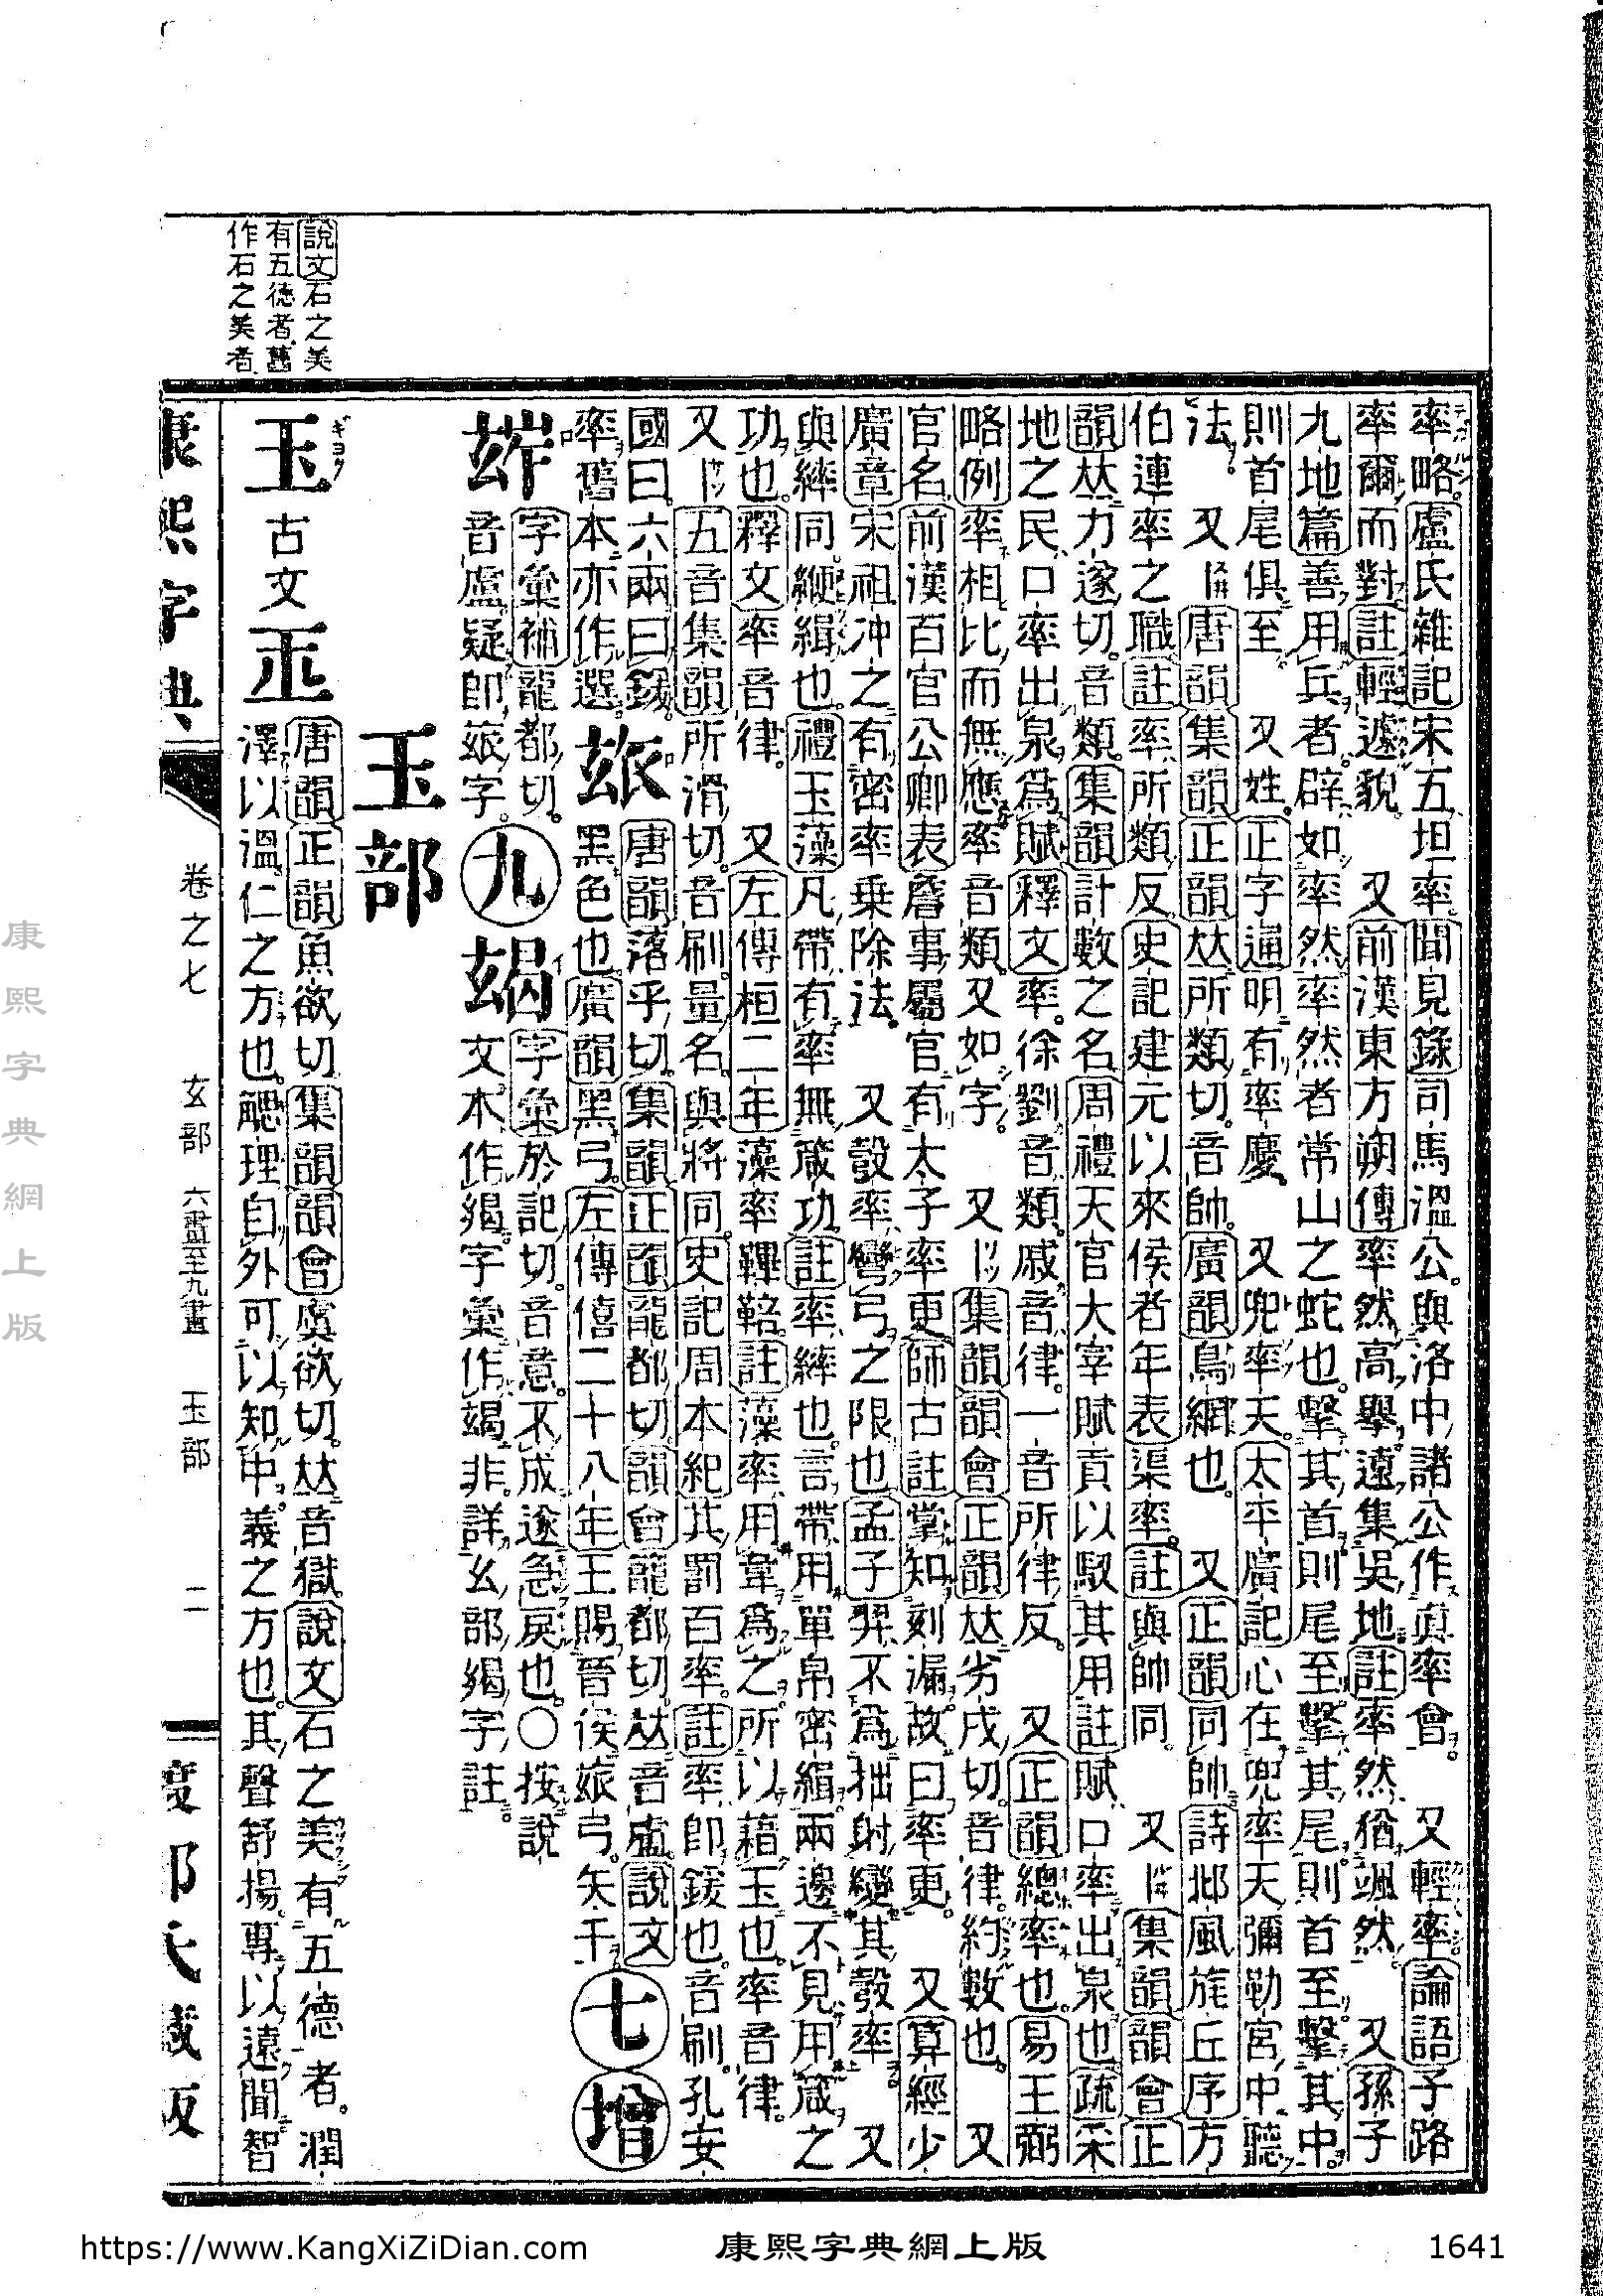 說文石之美
有五德者舊
作石之美者
率略盧氏雜記宋五坦率聞見錄司馬溫公與洛中諸公作眞率會又輕率論語子路
率爾而對註輕遽貌又前漢東方朔傳率然高舉遠集吳地註率然猶颯然又孫子
九地篇善用兵者辟如率然率然者常山之蛇也擊其首則尾至擊其尾則首至擊其中
則首尾俱至又姓正字通明有率慶又兜率天太平廣記心在兜率天彌勒宮中聽
法又唐韻集韻正韻𠀤所類切音帥廣韻鳥網也又正韻同帥詩邶風旄丘序方
伯連率之職註率所類反史記建元以來侯者年表渠率註與帥同又集韻韻會正
韻𠀤力遂切音類集韻計數之名周禮天官大宰賦貢以馭其用註賦口率出泉也疏采
地之民口率出泉爲賦釋文率徐劉音類戚音律一音所律反又正韻總率也易王弼
略例率相比而無應率音類又如字又集韻韻會正韻𠀤劣戌切音律約數也又
官名前漢百官公卿表詹事屬官有太子率更師古註掌知刻漏故曰率更又算經少
廣章宋祖冲之有密率乗除法又彀率彎弓之限也孟子羿不爲拙射變其彀率又
與繂同緶緝也禮玉藻凡帶有率無箴功註率繂也言帶用單帛密緝兩邊不見用箴之
功也釋文率音律又左傳桓二年藻率鞸鞛註藻率用韋爲之所以藉玉也率音律
又五音集韻所滑切音刷量名與將同史記周本紀其罰百率註率卽鍰也音刷孔安
國曰六兩曰鍰玈唐韻落乎切集韻正韻龍都切韻會籠都切𠀤音盧說文
率舊本亦作選黑色也廣韻黑弓左傳僖二十八年王賜晉侯玈弓矢千七增
字彙補龍都切字彙於記切音意不成遂急戾也〇按說
音盧疑卽玈字九文本作字彙作非詳幺部字註
玉部
玉古文唐韻正韻魚欲切集韻韻會虞欲切𠀤音獄說文石之美有五德者潤
澤以溫仁之方也䚡理自外可以知中義之方也其聲舒揚專以遠聞智
康熙字典
卷之七
玄部
六畫至九畫
玉部
二
渡部氏藏版
康熙字典網上版
https://www.KangXiZiDian.com
康熙字典網上版
1641